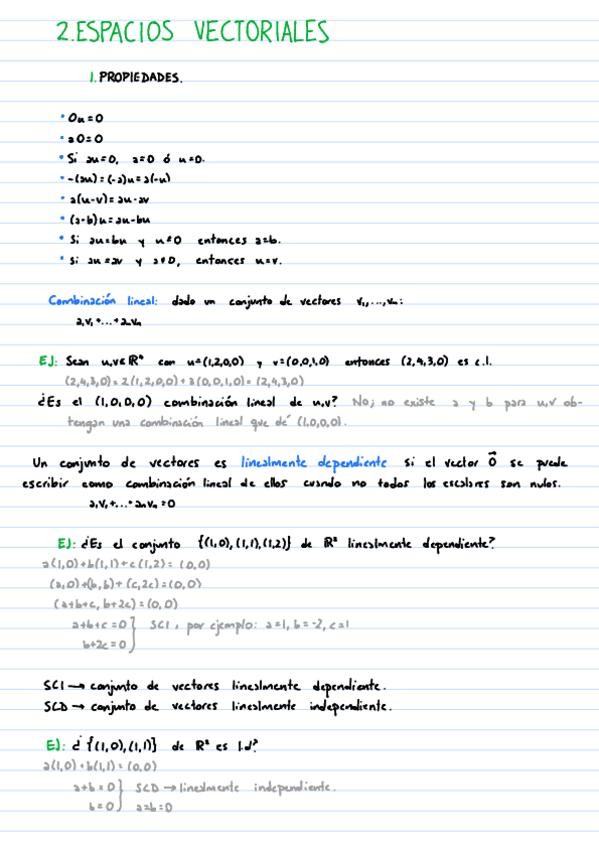 2.ESPACIOS VECTORIALES
1. PROPIEDADES.
• 0u=0
• a0=0
• Si au=0, a=0 ó u=0.
• -(au)=(-a)u=a(-u)
• a(u-v)=au-av
• (a-b)u=au-bu
• Si au=bu y u≠0 entonces a=b.
• Si au=av y a≠0, entonces u=v.
Combinación lineal: dado un conjunto de vectores v₁,...,vₙ:
a₁v₁+...+aₙvₙ
EJ: Sean u,v∈ℝ⁴ con u=(1,2,0,0) y v=(0,0,1,0) entonces (2,4,3,0) es c.l.
(2,4,3,0)=2(1,2,0,0)+3(0,0,1,0)=(2,4,3,0)
¿Es el (1,0,0,0) combinación lineal de u,v? No; no existe a y b para u,v ob-
tengan una combinación lineal que dé (1,0,0,0).
Un conjunto de vectores es linealmente dependiente si el vector 0⃗ se puede
escribir como combinación lineal de ellos cuando no todos los escalares son nulos.
a₁v₁+...+aₙvₙ=0
EJ: ¿Es el conjunto {(1,0),(1,1),(1,2)} de ℝ² linealmente dependiente?
a(1,0)+b(1,1)+c(1,2)=(0,0)
(a,0)+(b,b)+(c,2c)=(0,0)
(a+b+c, b+2c)=(0,0)
a+b+c=0 } SCI, por ejemplo: a=1, b=-2, c=1
b+2c=0
SCI → conjunto de vectores linealmente dependiente.
SCD → conjunto de vectores linealmente independiente.
EJ: ¿{(1,0),(1,1)} de ℝ² es l.d?
a(1,0)+b(1,1)=(0,0)
a+b=0 } SCD → linealmente independiente.
b=0 } a=b=0